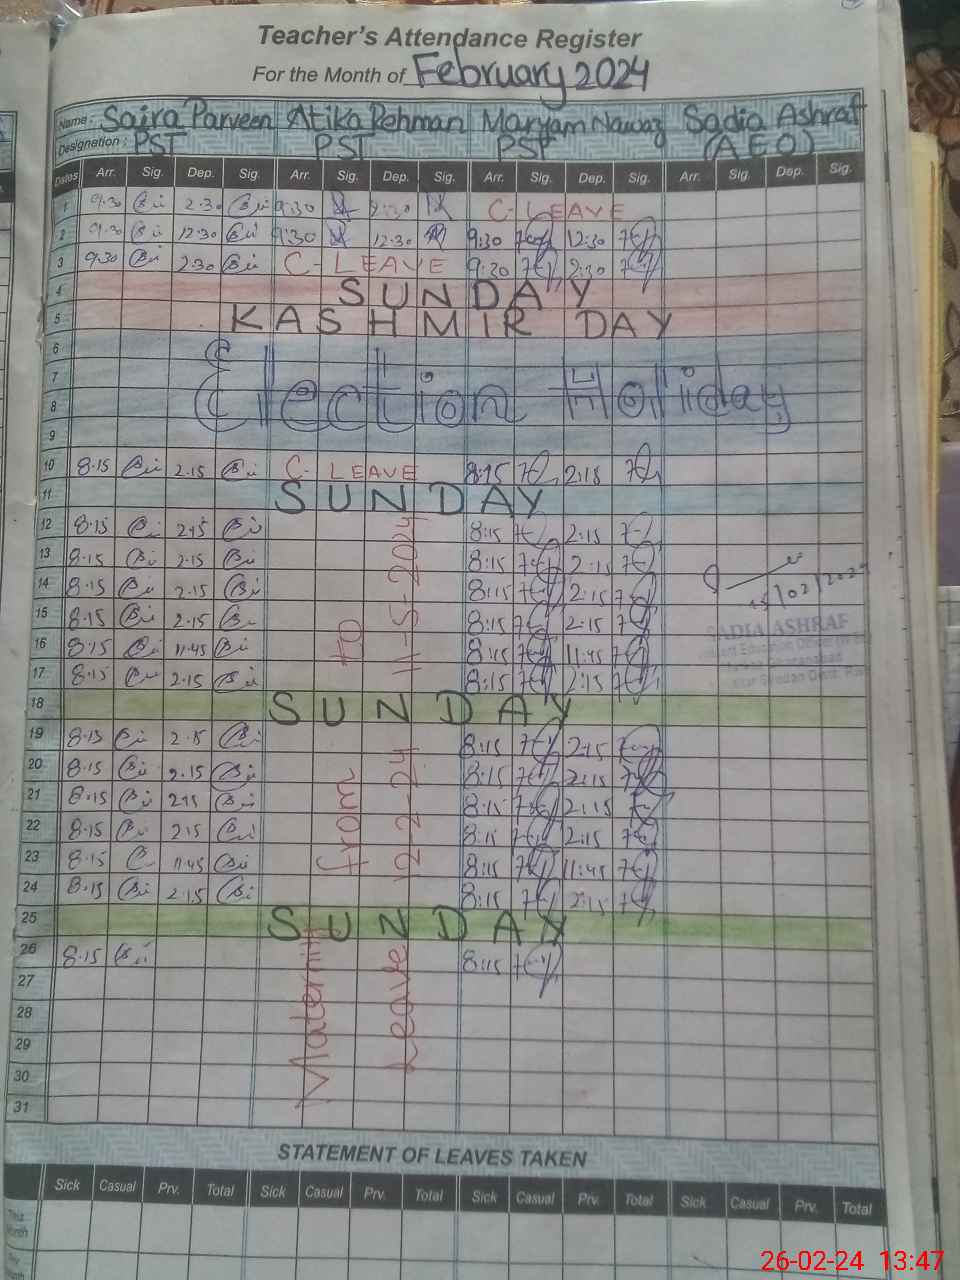 Teacher's Attendance Register
For the Month of February 2024
Name: Saira Parveen Atika Rehman Maryam Nawaz Sadia Ashraf
Designation: PST PST PST (AEO)
Dates Arr. Sig. Dep. Sig. Arr. Sig. Dep. Sig. Arr. Sig. Dep. Sig. Arr. Sig. Dep. Sig.
1 9:30 2:30 9:30 2:30 C-LEAVE
2 9:30 12:30 9:30 12:30 9:30 12:30
3 9:30 2:30 C-LEAVE 9:30 2:30
4 SUNDAY
5 KASHMIR DAY
6
7 Election Holiday
8
9
10 8.15 2.15 C-LEAVE 8:15 2:15
11 SUNDAY
12 8.15 2.15 8:15 2:15
13 8.15 2.15 8:15 2:15
14 8.15 2.15 8:15 2:15
15 8.15 2.15 8:15 2:15
16 8.15 11.45 8:15 11:45
17 8.15 2.15 8:15 2:15
18 SUNDAY
19 8.15 2.15 8:15 2:15
20 8.15 2.15 8:15 2:15
21 8.15 2.15 8:15 2:15
22 8.15 2.15 8:15 2:15
23 8.15 11.45 8:15 11:45
24 8.15 2.15 8:15 2:15
25 SUNDAY
26 8.15 8:15
27
28
29
30
31
Maternity from to
Leave 12-2-24 11-5-2024
15/02/2024
SADIA ASHRAF
STATEMENT OF LEAVES TAKEN
Sick Casual Prv. Total Sick Casual Prv. Total Sick Casual Prv. Total Sick Casual Prv. Total
This Month
26-02-24 13:47